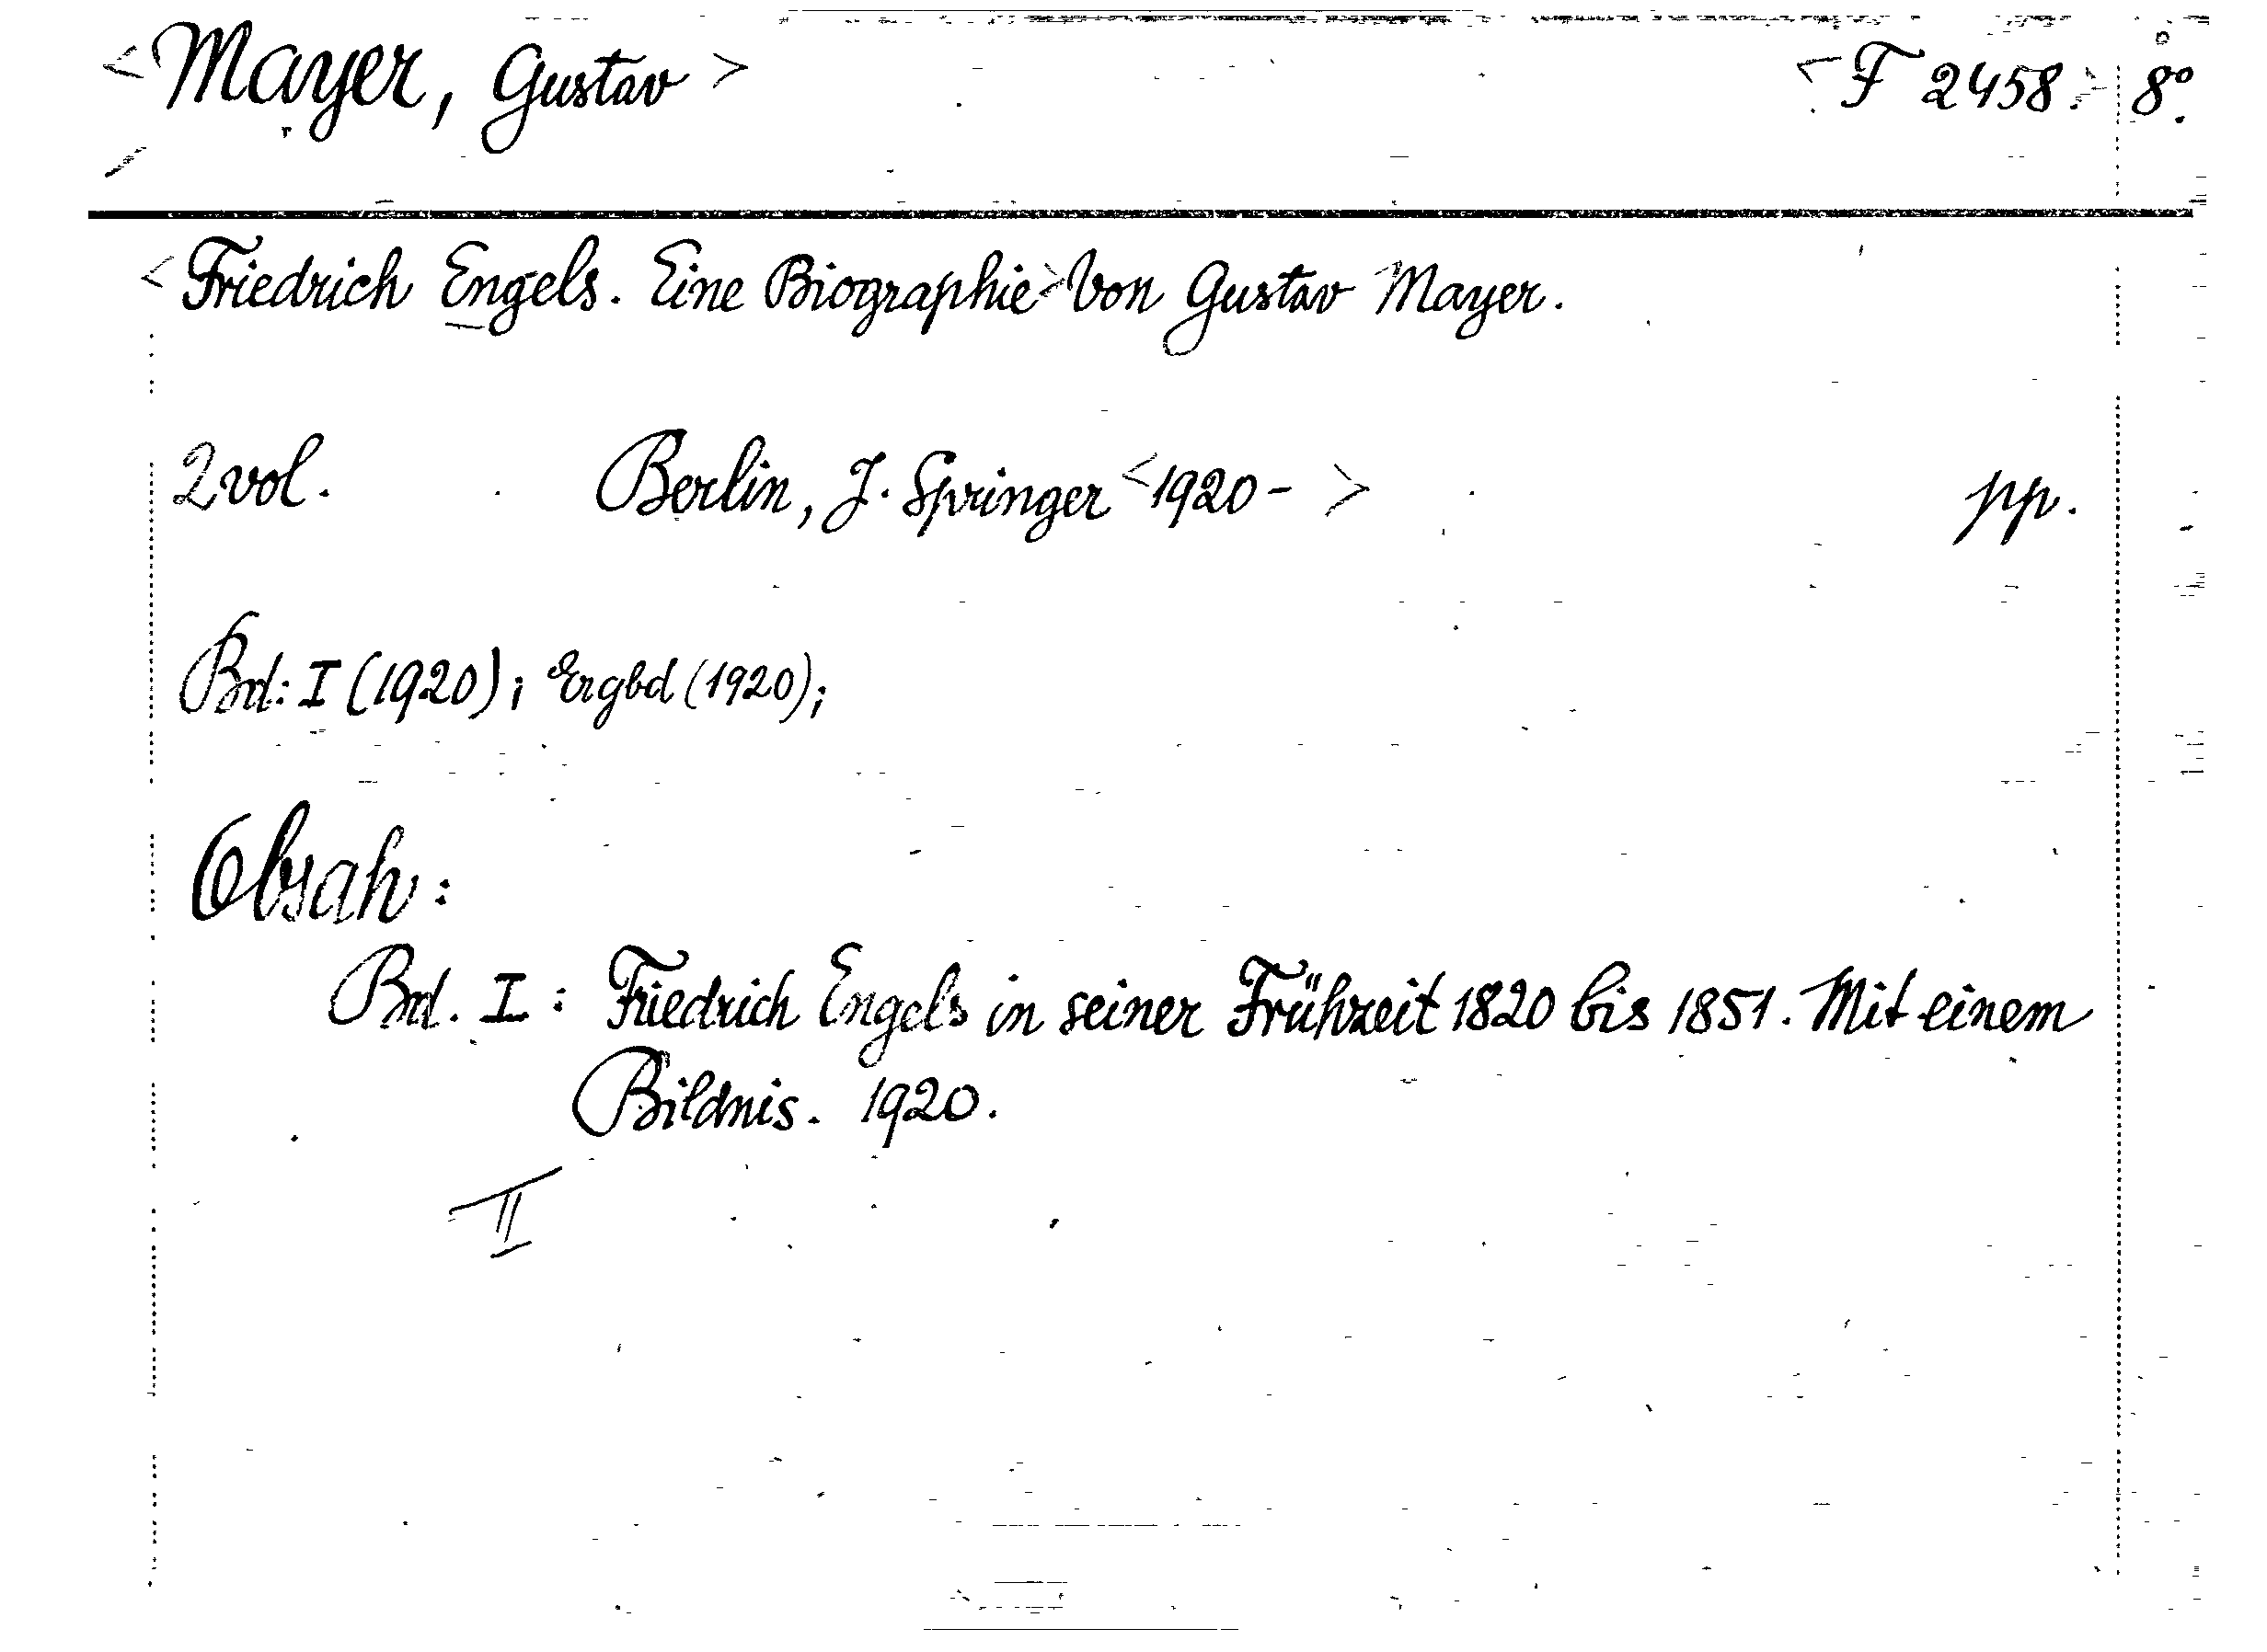 <Mayer, Gustav> <F 2458> 8°
<Friedrich Engels. Eine Biographie> Von Gustav Mayer.
2 vol. Berlin, J. Springer <1920- > pp.
Bd: I (1920); Ergbd (1920);
Obsah:
Bd. I: Friedrich Engels in seiner Frühzeit 1820 bis 1851. Mit einem
Bildnis. 1920.
II